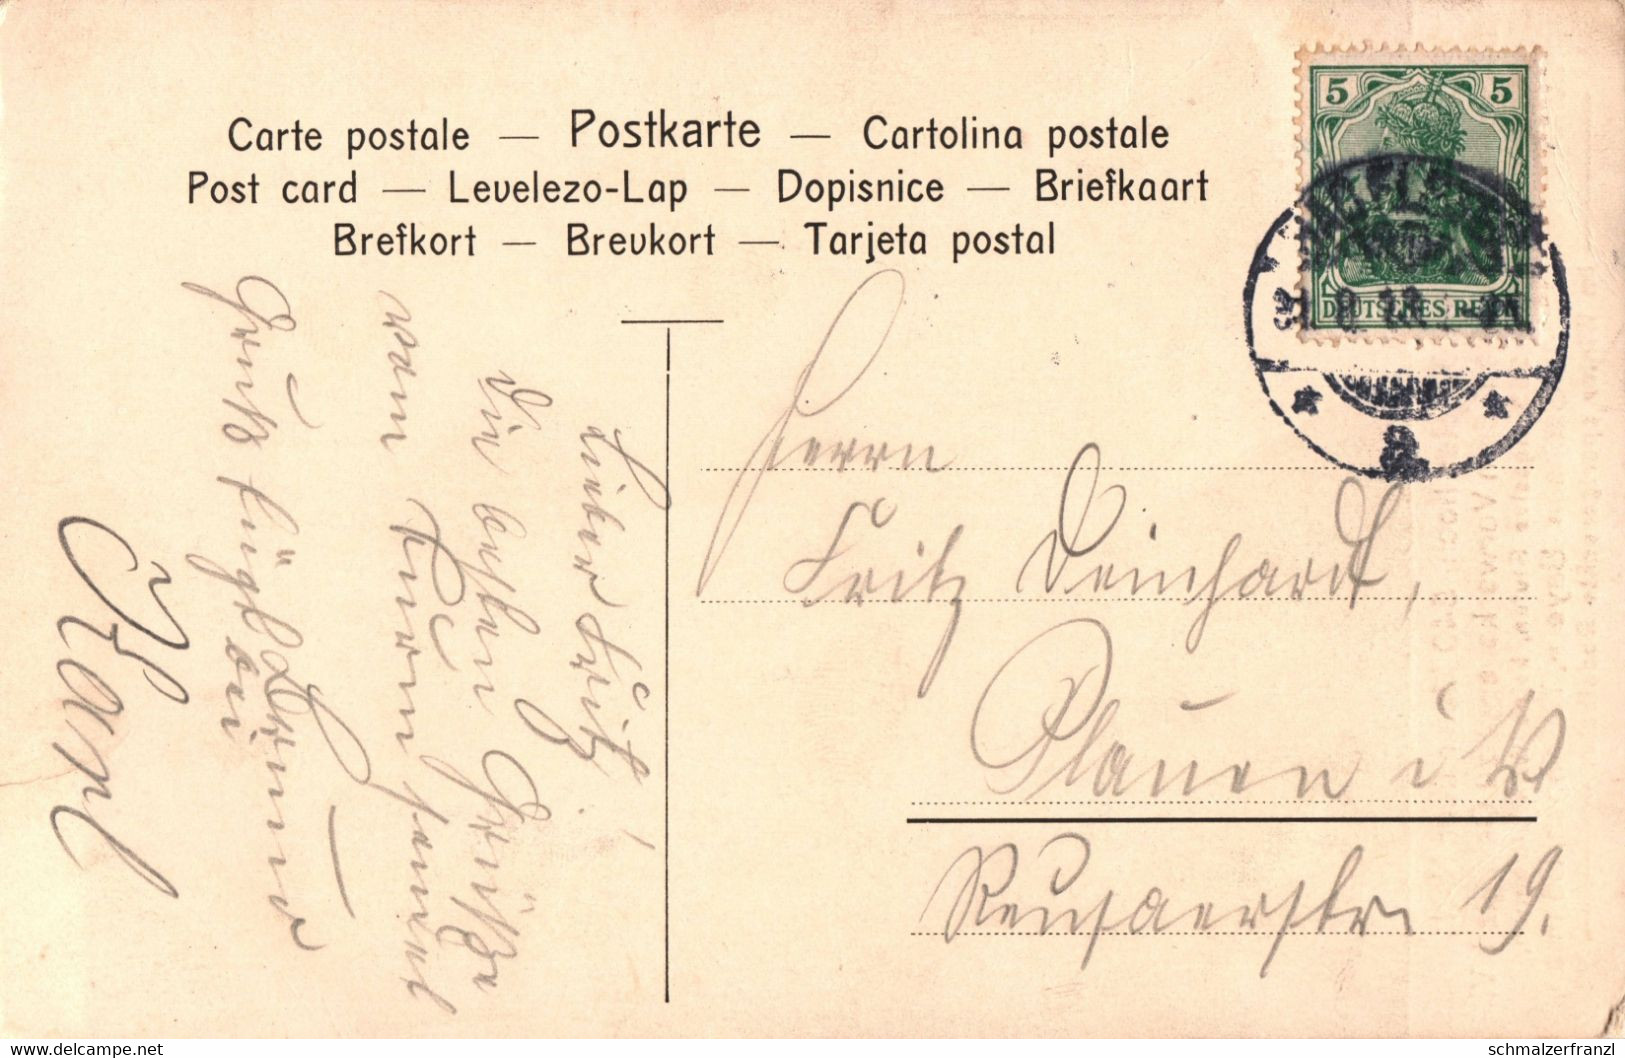 Carte postale — Postkarte — Cartolina postale
Post card — Levelezo-Lap — Dopisnice — Briefkaart
Brefkort — Brevkort — Tarjeta postal
5 5
DEUTSCHES REICH
a
Herrn
Fritz Deinhardt,
Plauen i V
Reusaerstr. 19.
Lieber Fritz!
Die besten Grüße
vom
Gruß
Karl
www.delcampe.net
schmalzerfranzl